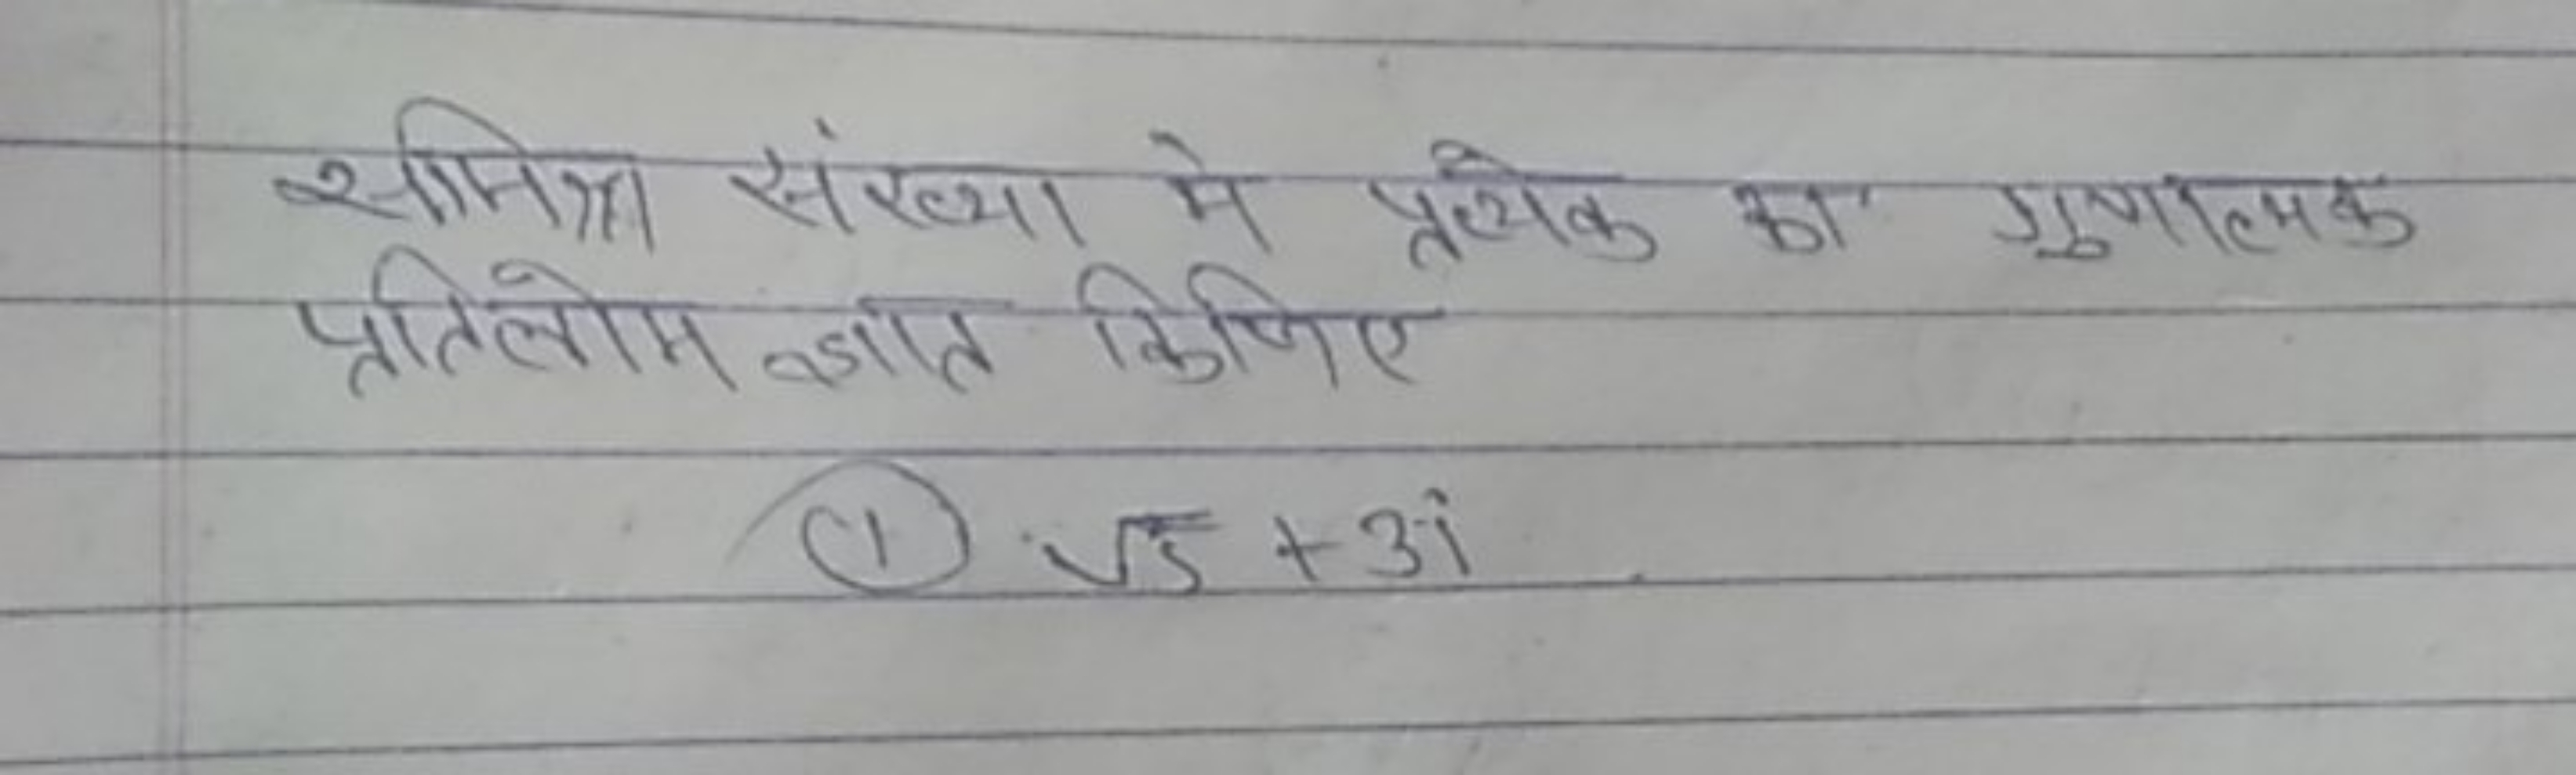 समिश्रा संख्या मे प्रत्येक का गुणात्मक
प्रतिलोम ज्ञात किजिए
① √5 + 3i